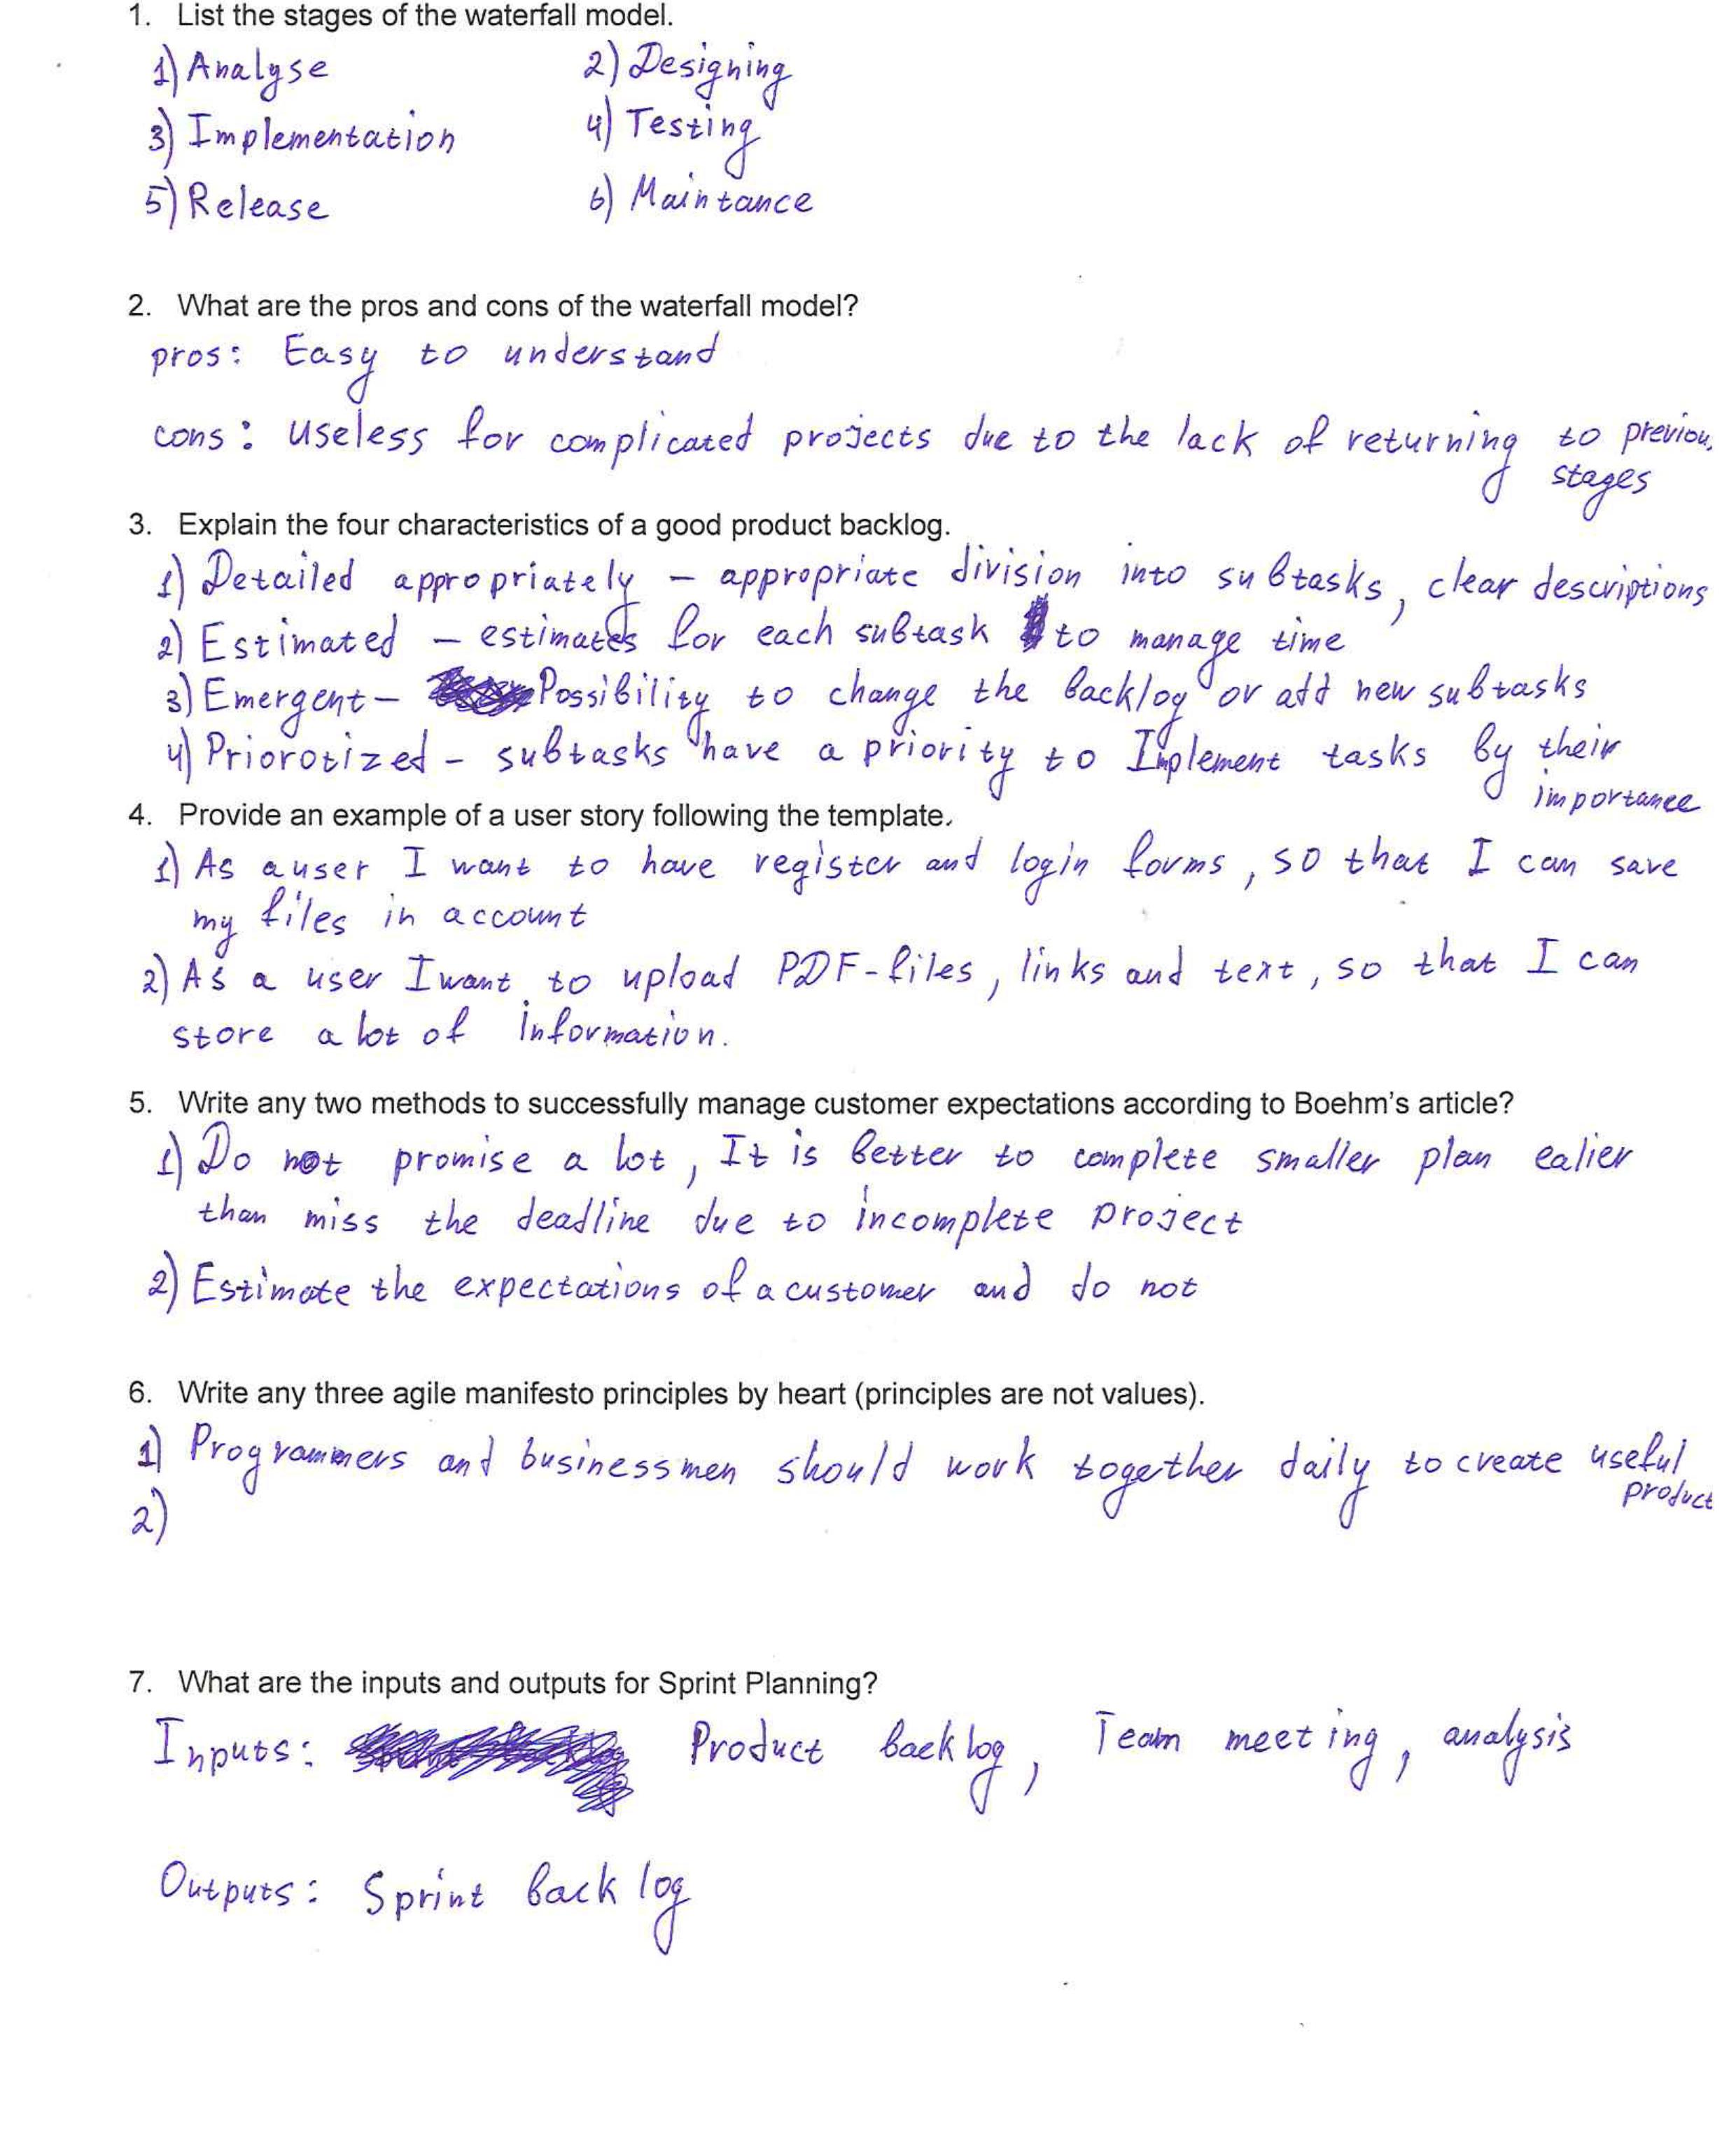 1. List the stages of the waterfall model.
1) Analyse 2) Designing
3) Implementation 4) Testing
5) Release 6) Maintance
2. What are the pros and cons of the waterfall model?
pros: Easy to understand
cons: useless for complicated projects due to the lack of returning to previou
stages
3. Explain the four characteristics of a good product backlog.
1) Detailed appropriately - appropriate division into subtasks, clear descriptions
2) Estimated - estimates for each subtask to manage time
3) Emergent - Possibility to change the backlog or add new subtasks
4) Priorotized - subtasks have a priority to Implement tasks by their
importance
4. Provide an example of a user story following the template.
1) As a user I want to have register and login forms, so that I can save
my files in account
2) As a user I want to upload PDF-files, links and text, so that I can
store a lot of information.
5. Write any two methods to successfully manage customer expectations according to Boehm's article?
1) Do not promise a lot, It is better to complete smaller plan ealier
than miss the deadline due to incomplete project
2) Estimate the expectations of a customer and do not
6. Write any three agile manifesto principles by heart (principles are not values).
1) Programmers and businessmen should work together daily to create useful
product
2)
7. What are the inputs and outputs for Sprint Planning?
Inputs: Product backlog, Team meeting, analysis
Outputs: Sprint backlog